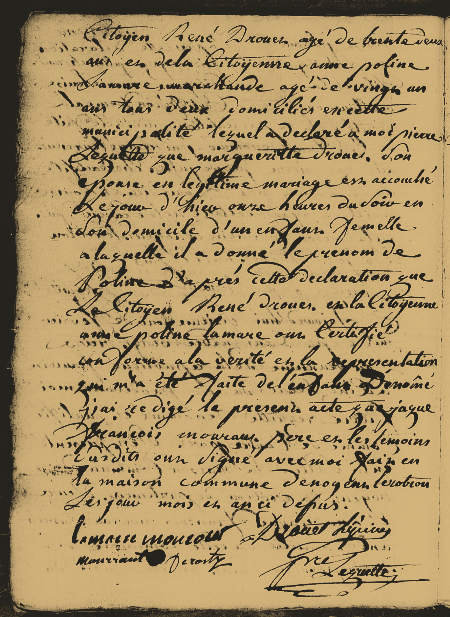 Citoyen René Drouet agé de trente deux
ans et de la Citoyenne anne poline
Lamare marchande agé de vingt un
ans tous deux domiciliés en cette
municipalité lequel a declaré a moi pierre
Lequette que margueritte Drouet son
epouse en legitime mariage est accouché
Le jour d'hier onze heures du soir en
son domicile d'un enfant femelle
a laquelle il a donné le prenom de
Poline d'après cette declaration que
Le Citoyen René Drouet et la Citoyenne
anne poline lamare ont Certifié
conforme a la verité et la representation
qui m'a été faite de l'enfant denomé
j'ai redigé le present acte que jaque
françois mouraux père et les temoins
susdits ont signé avec moi fait en
la maison commune de nogent
Les jour mois et an ci depus.
lamare Drouet
mouraux
Lequette